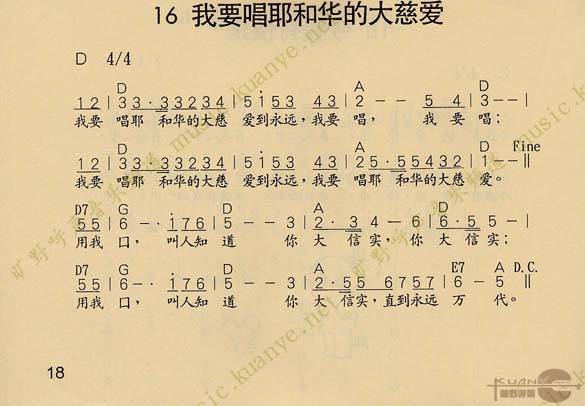 16 我要唱耶和华的大慈爱
D 4/4
D D A D
1 2 | 3 3 · 3 3 2 3 4 | 5 i 5 3 4 3 | 2 - - 5 4 | 3 - - |
我要 唱耶 和华的大慈 爱到永远，我要 唱， 我 要 唱；
D D A D Fine
1 2 | 3 3 · 3 3 2 3 4 | 5 i 5 3 4 3 | 2 5 · 5 5 4 3 2 | 1 - - ‖
我要 唱耶 和华的大慈 爱到永远，我要 唱耶 和华的大慈 爱。
D7 G D A D
5 5 | 6 - · i 7 6 | 5 - - 3 | 2 · 3 4 - 6 | 6 · 5 5 - |
用我 口， 叫人知 道 你 大 信实，你 大 信 实；
D7 G D A E7 A D.C.
5 5 | 6 - · i 7 6 | 5 - - 3 | 2 · 5 5 6 7 5 7 | 6 - 5 ‖
用我 口， 叫人知 道 你 大 信实，直到永远 万 代。
18
旷野呼声音乐频道 music.kuanye.net
KUANYE
旷野呼声